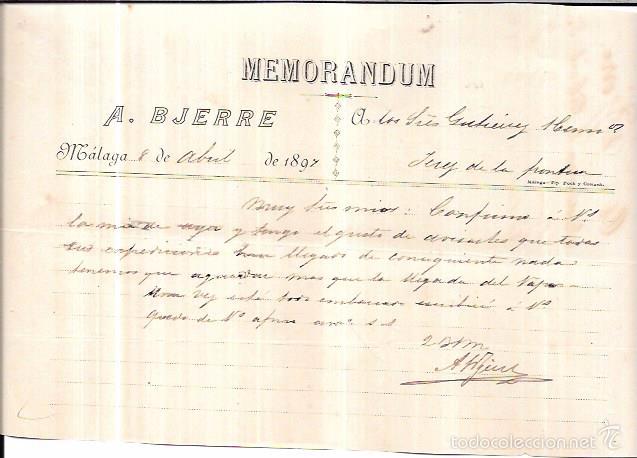 MEMORANDUM
A. BJERRE
A los Sres Gutierrez Hermnos
Málaga 8 de Abril de 1897
Jerez de la frontera
Málaga-Tip. Poch y Creixell.
Muy Sres mios: Confirmo á Vs
la mia de ayer y tengo el gusto de avisarles que todas
sus expediciones han llegado de consiguiente nada
tenemos que aguardar mas que la llegada del Vapor
Una vez esté todo embarcado escribiré á Vs
Quedo de Vs afmo
A Bjerre
todocoleccion.net